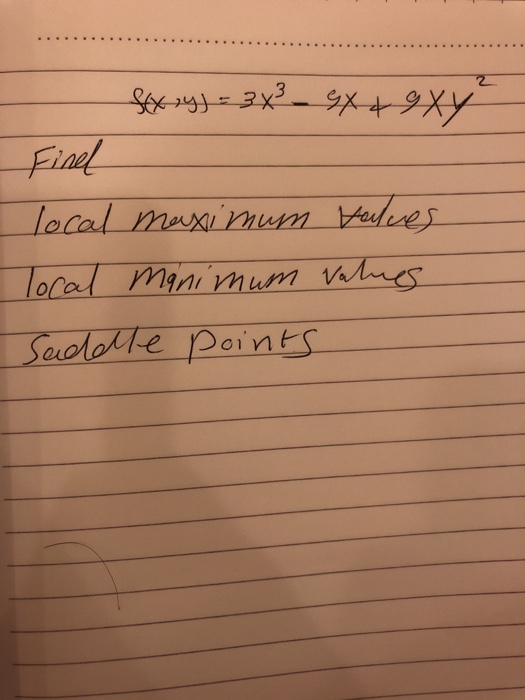 f(x,y) = 3x³ - 9x + 9xy²
Find
local maximum values
local minimum values
Saddle points